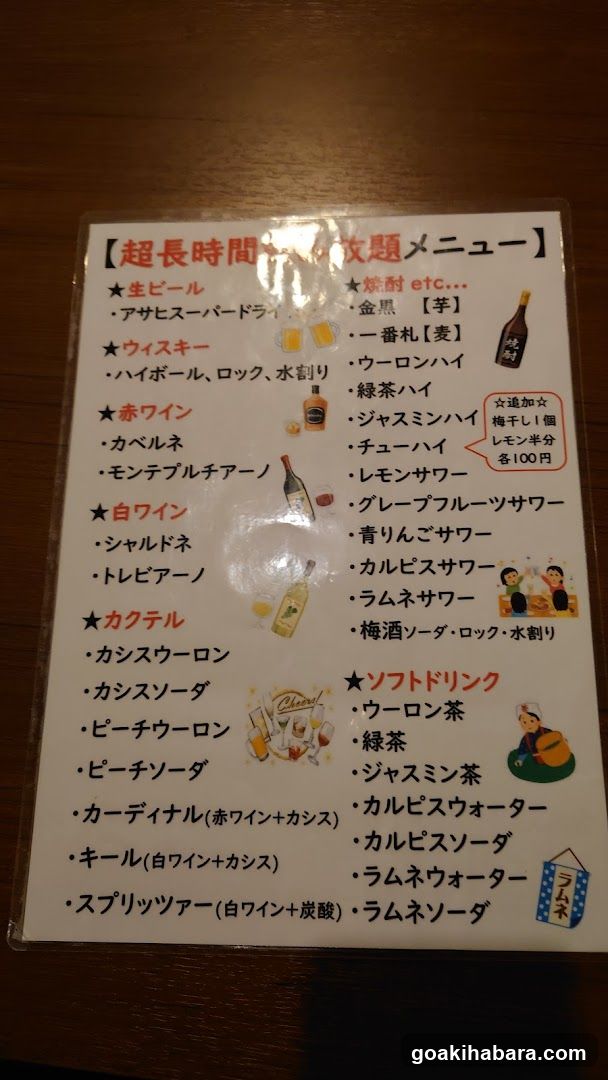 【超長時間 放題メニュー】
★生ビール
・アサヒスーパードライ
★ウィスキー
・ハイボール、ロック、水割り
★赤ワイン
・カベルネ
・モンテプルチアーノ
★白ワイン
・シャルドネ
・トレビアーノ
★カクテル
・カシスウーロン
・カシスソーダ
・ピーチウーロン
・ピーチソーダ
・カーディナル(赤ワイン+カシス)
・キール(白ワイン+カシス)
・スプリッツァー(白ワイン+炭酸)
Cheers!
★焼酎 etc...
・金黒 【芋】
・一番札【麦】
・ウーロンハイ
・緑茶ハイ
・ジャスミンハイ
・チューハイ
・レモンサワー
・グレープフルーツサワー
・青りんごサワー
・カルピスサワー
・ラムネサワー
・梅酒ソーダ・ロック・水割り
焼酎
☆追加☆
梅干し1個
レモン半分
各100円
★ソフトドリンク
・ウーロン茶
・緑茶
・ジャスミン茶
・カルピスウォーター
・カルピスソーダ
・ラムネウォーター
・ラムネソーダ
ラムネ
goakihabara.com